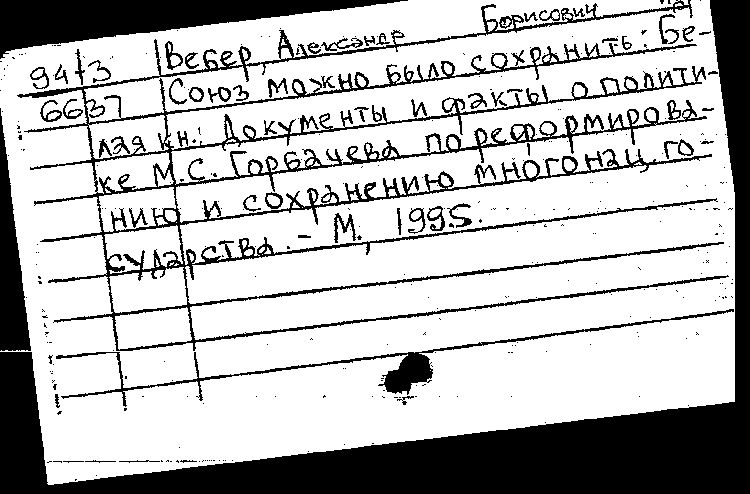 94+3 Вебер, Александр Борисович
6637 Союз можно было сохранить: Бе-
лая кн.: Документы и факты о полити-
ке М.С. Горбачева по реформирова-
нию и сохранению многонац. го-
сударства. – М., 1995.